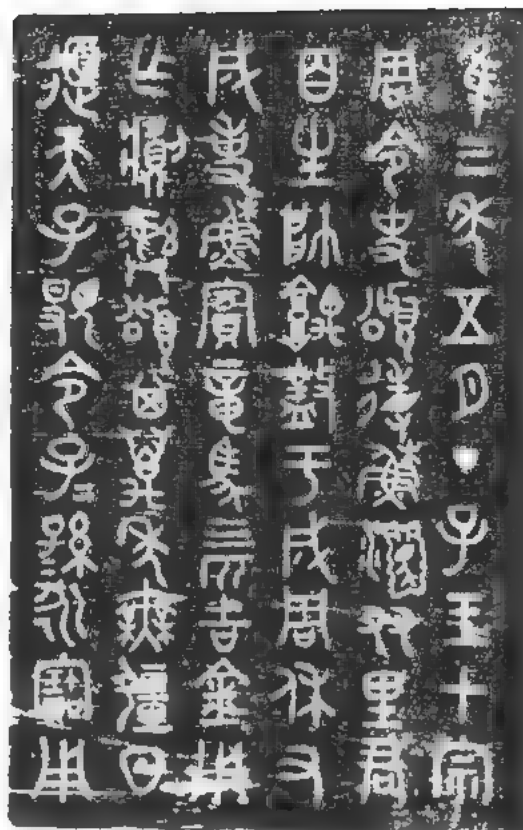 隹三年五月丁子王才宗
周令史頌𢓊穌𤔲友里君
百生帥堣盩于成周休又
成事穌賓章馬四匹吉金用
乍𩰬彝頌其萬年無疆日
𨒙天子𩁹令子=孫=永寶用